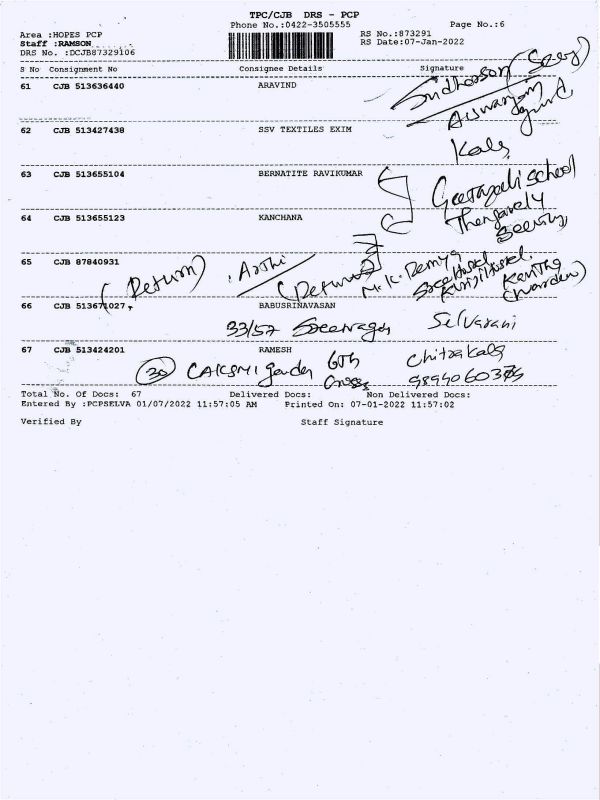 TPC/CJB DRS - PCP
Phone No.:0422-3505555 Page No.:6
Area :HOPES PCP RS No.:873291
Staff :RAMSON RS Date:07-Jan-2022
DRS No. :DCJB87329106
S No Consignment No Consignee Details Signature
61 CJB 513636440 ARAVIND
62 CJB 513427438 SSV TEXTILES EXIM
Kala
63 CJB 513655104 BERNATITE RAVIKUMAR
school
64 CJB 513655123 KANCHANA
65 CJB 87840931
(Return) (Return)
66 CJB 513671027 BABUSRINAVASAN
33/57 Selvarani
67 CJB 513424201 RAMESH
30 6th Chitrakala
Cross
Total No. Of Docs: 67 Delivered Docs: Non Delivered Docs:
Entered By :PCPSELVA 01/07/2022 11:57:05 AM Printed On: 07-01-2022 11:57:02
Verified By Staff Signature